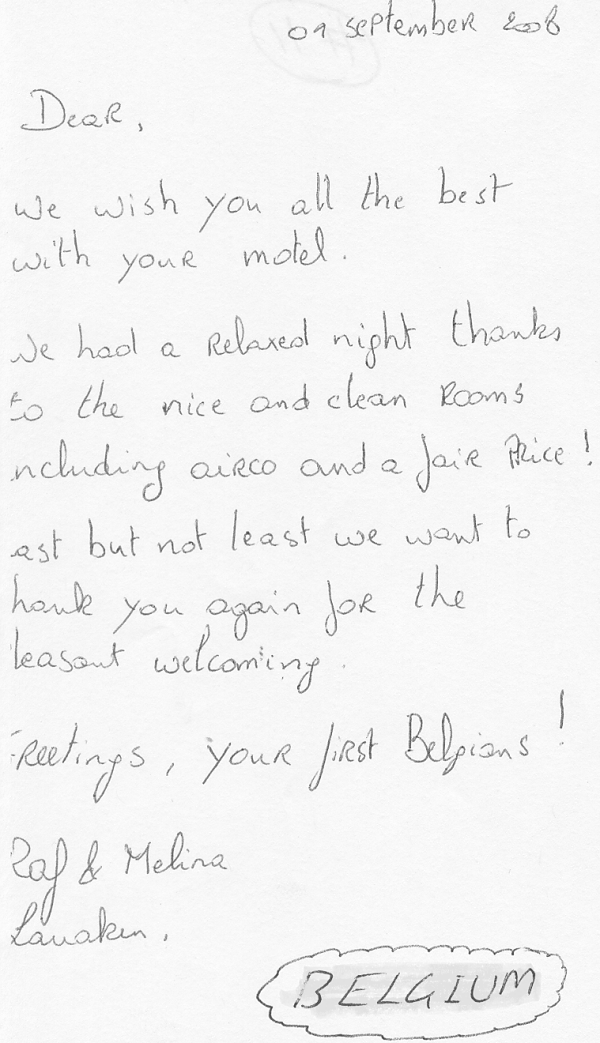 09 september 2008
Dear,
We wish you all the best
with your motel.
We had a relaxed night thanks
to the nice and clean rooms
ncluding airco and a fair Price !
ast but not least we want to
hank you again for the
leasant welcoming.
reetings, your first Belgians !
Raf & Melina
Lanaken.
BELGIUM